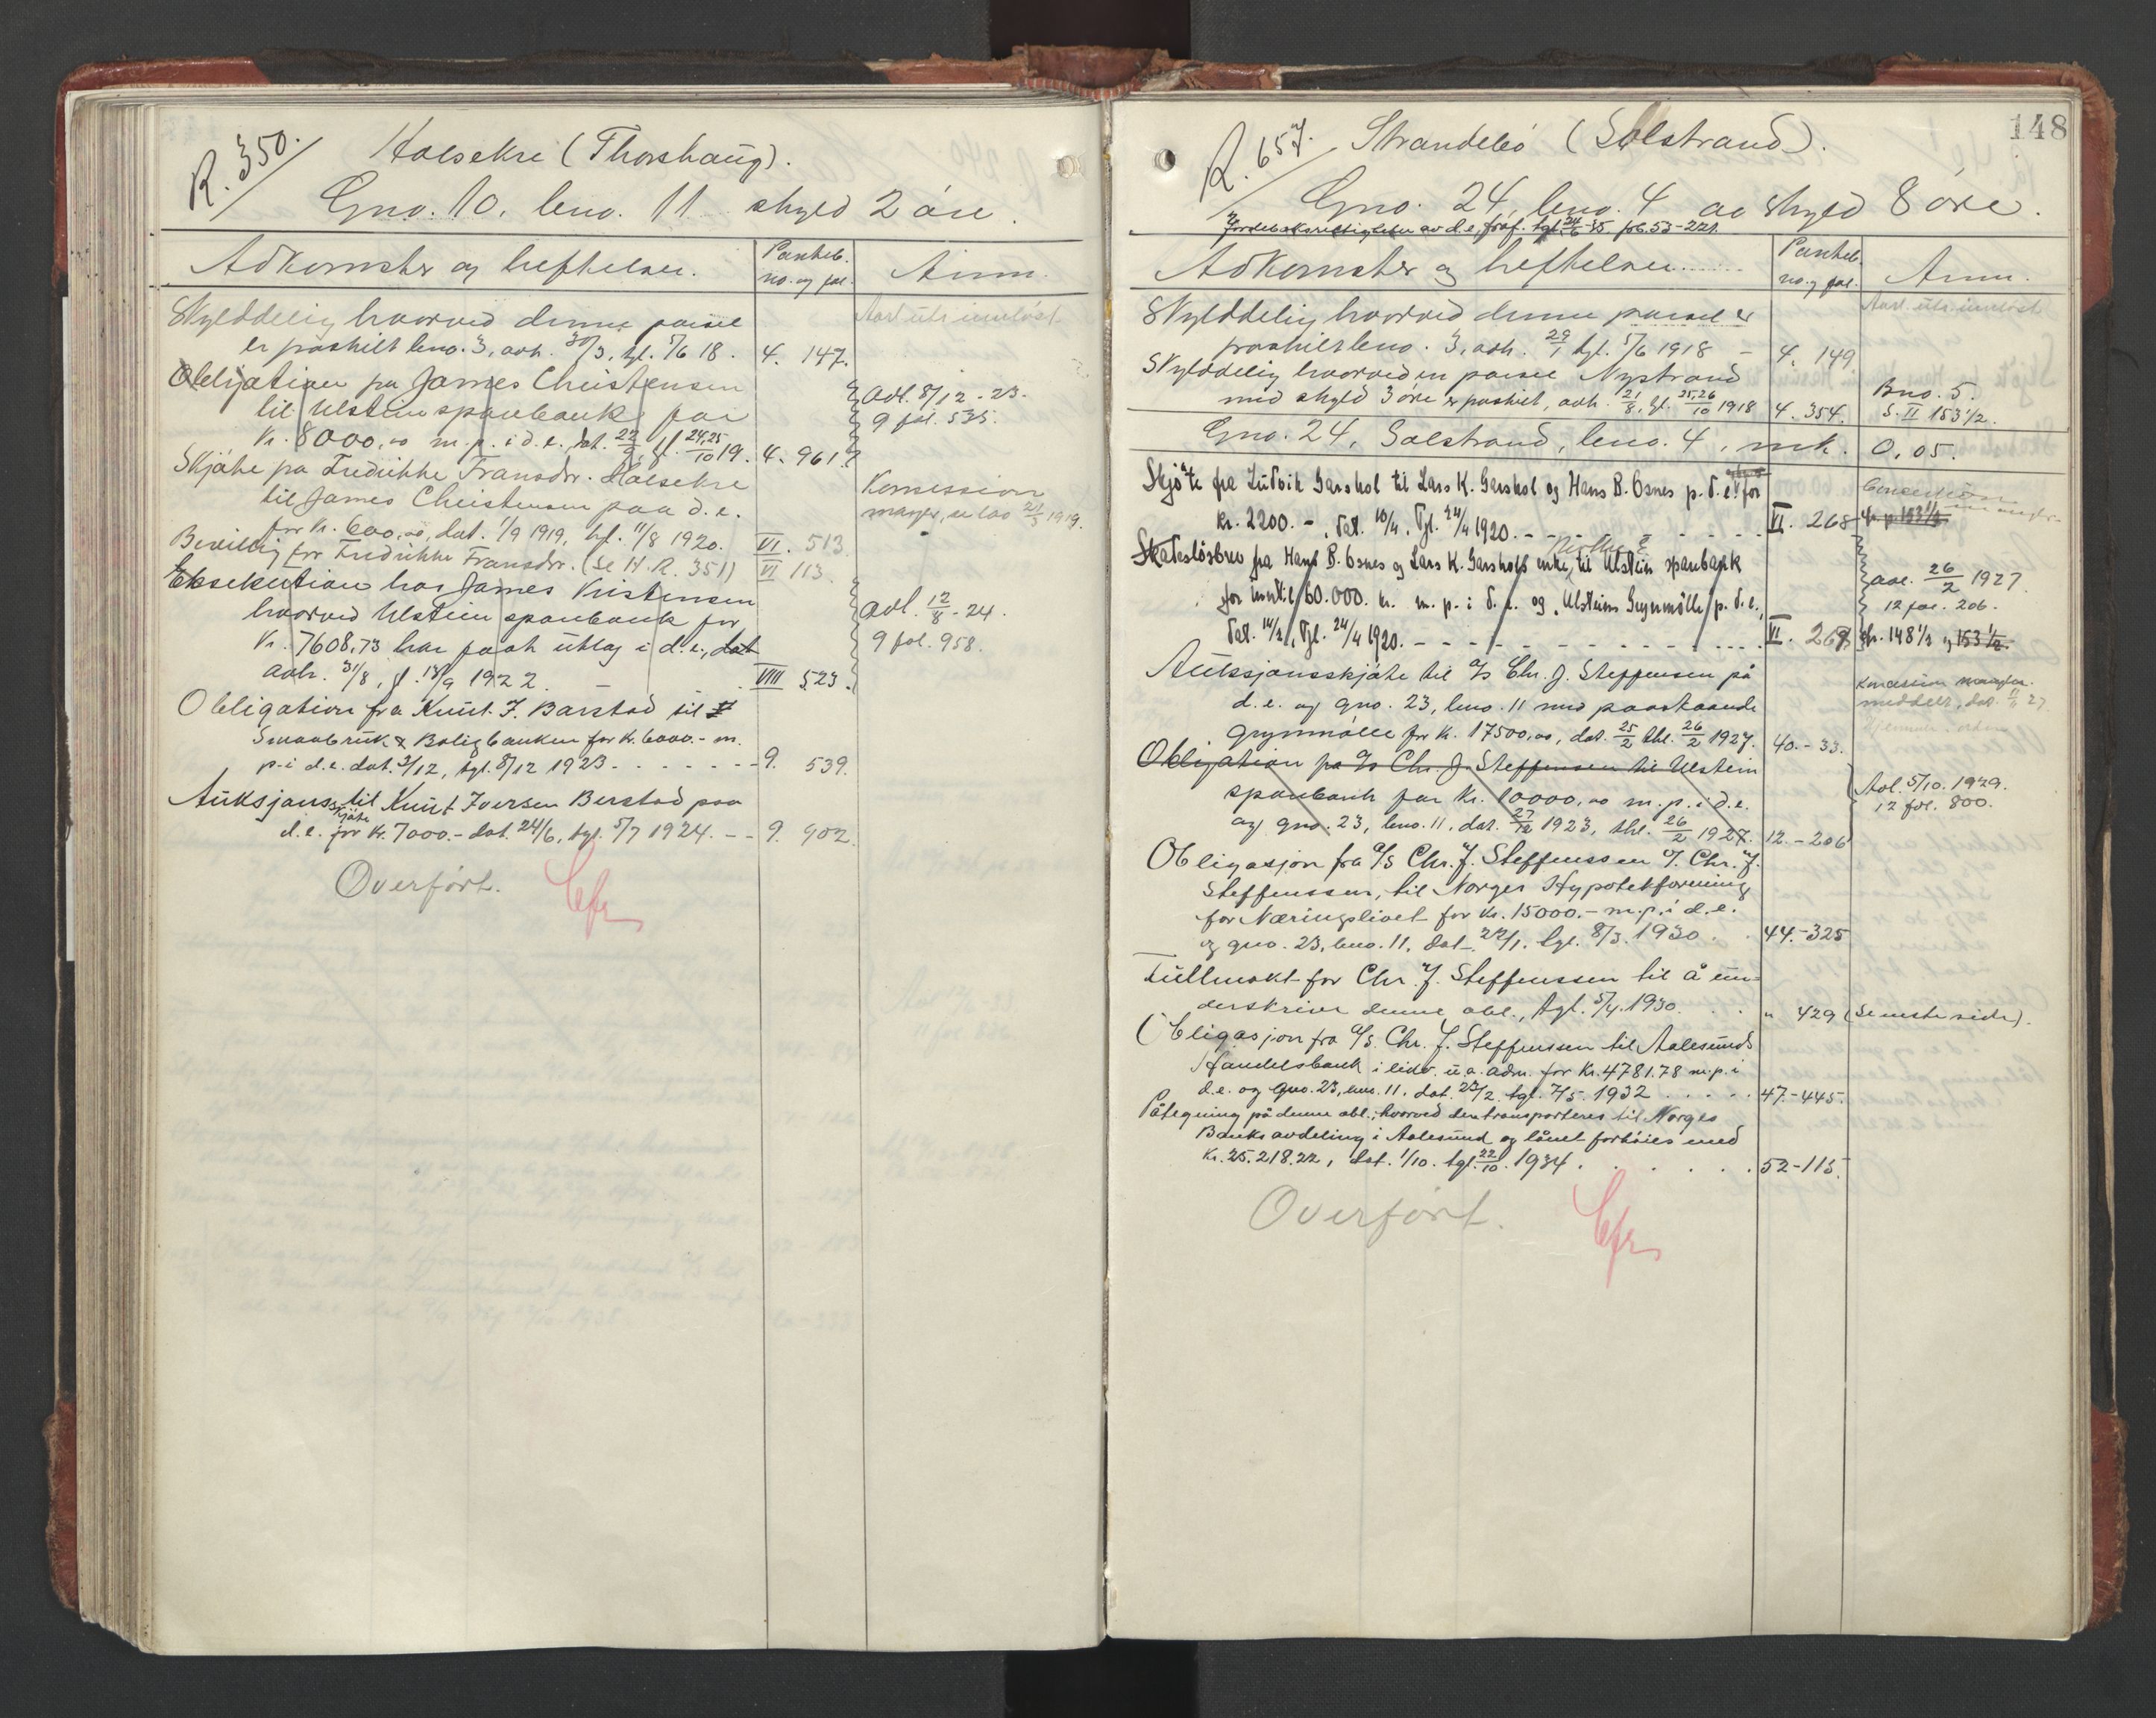 R. 350.
Halsekre (Thorshaug).
Gno. 10, bno. 11 skyld 2 øre.
Adkomster og heftelser.
Panteb. no. og fol.
Anm.
Skylddeling hvorved denne parsel
er fraskilt bno. 3, avh. 30/3, tgl. 5/6 18.
4. 147.
Obligation fra James Christensen
til Ulstein sparebank for
Kr. 8000,00 m. p. i d. e. dat. 22/9, tgl. 24,25/10 19.
4. 961.
Avl. 8/12-23.
9 fol. 535.
Skjøte fra Fredrikke Fransdr. Halsekre
til James Christensen paa d. e.
for kr. 600,00, dat. 1/9 1919, tgl. 11/8 1920.
VI. 513
Konsession
Bevilling for Fredrikke Fransdr. (Se N. R. 351)
VI 113.
Eksekution hos James Kristensen
hvorved Ulstein sparebank for
Kr. 7608,73 har faat utlæg i d. e., dat
avh. 31/8, tgl. 13/9 1922.
VIII 523.
Avl. 12/8-24.
9 fol. 958.
Obligation fra Knut J. Barstad til
Smaabruk & Boligbanken for kr. 6000.- m.
p. i d. e. dat. 3/12, tgl. 8/12 1923
9. 539.
Auksjonsskjøte til Knut Iversen Berstad paa
d. e. for kr. 7000.- dat. 24/6, tgl. 5/7 1924.
9. 902.
Overført.
148
R. 657.
Strandebø (Solstrand).
Gno. 24, bno. 4 av skyld 8 øre.
Adkomster og heftelser
Panteb. no. og fol.
Anm.
Skylddeling hvorved denne parsel er
fraskilt bno. 3, avh. 29/1 tgl. 5/6 1918
4. 149
Skylddeling hvorved en parsel Nystrand
med skyld 3 øre er fraskilt, avh. 21/8, tgl. 25,26/10 1918
4. 354.
Bno. 5.
S. II 153 1/2.
Gno. 24, Solstrand, bno. 4, mk. 0,05.
Skjøte fra Ludvik Garshol til Lars K. Garshol og Hans B. Osnes p. d. e. for
kr. 2200.-, dat. 10/4, tgl. 24/4 1920.
VI. 268
Skadesløsbrev fra Hans B. Osnes og Lars K. Garshols enke, til Ulstein sparebank
for inntil 60.000. kr. m. p. i d. e. og "Ulsteins Grynmølle" p. d. e.,
dat. 14/2, tgl. 24/4 1920.
VI. 269
avl. 26/2 1927
12 fol. 206.
cfr. 148 1/2 og 153 1/2.
Auksjonsskjøte til A/S Chr. J. Steffensen på
d. e. og gno. 23, bno. 11 med paastaaende
grynmølle for kr. 17500,00, dat. 25/2 tbl. 26/2 1927.
40.-33.
Konsession mangler.
Obligation fra A/S Chr. J. Steffensen til Ulstein
sparebank for Kr. 10000,00 m. p. i d. e.
og gno. 23, bno. 11, dat. 27/12 1923, tbl. 26/2 1927.
12.-206
Avl. 5/10. 1929.
12 fol. 800.
Obligasjon fra A/S Chr. J. Steffenssen v/ Chr. J.
Steffenssen, til Norges Hypotekforening
for Næringslivet for kr. 15000.- m. p. i d. e.
og gno. 23, bno. 11, dat. 22/1, tgl. 8/3. 1930
44.-325
Fullmakt for Chr. J. Steffenssen til å un-
derskrive denne obl., tgl. 5/4. 1930.
" 429 (Se neste side).
Obligasjon fra A/S. Chr. J. Steffenssen til Aalesunds
Handelsbank i likv. u. a. adm. for Kr. 4781.78 m. p. i
d. e. og gno. 23, bno. 11, dat. 23/2. tgl. 7/5. 1932
47.-445.
Påtegning på denne obl., hvorved den transporteres til Norges
Banks avdeling i Aalesund og lånet forhøies med
Kr. 25.218.22, dat. 1/10. tgl. 22/10. 1934.
52-115.
Overført.